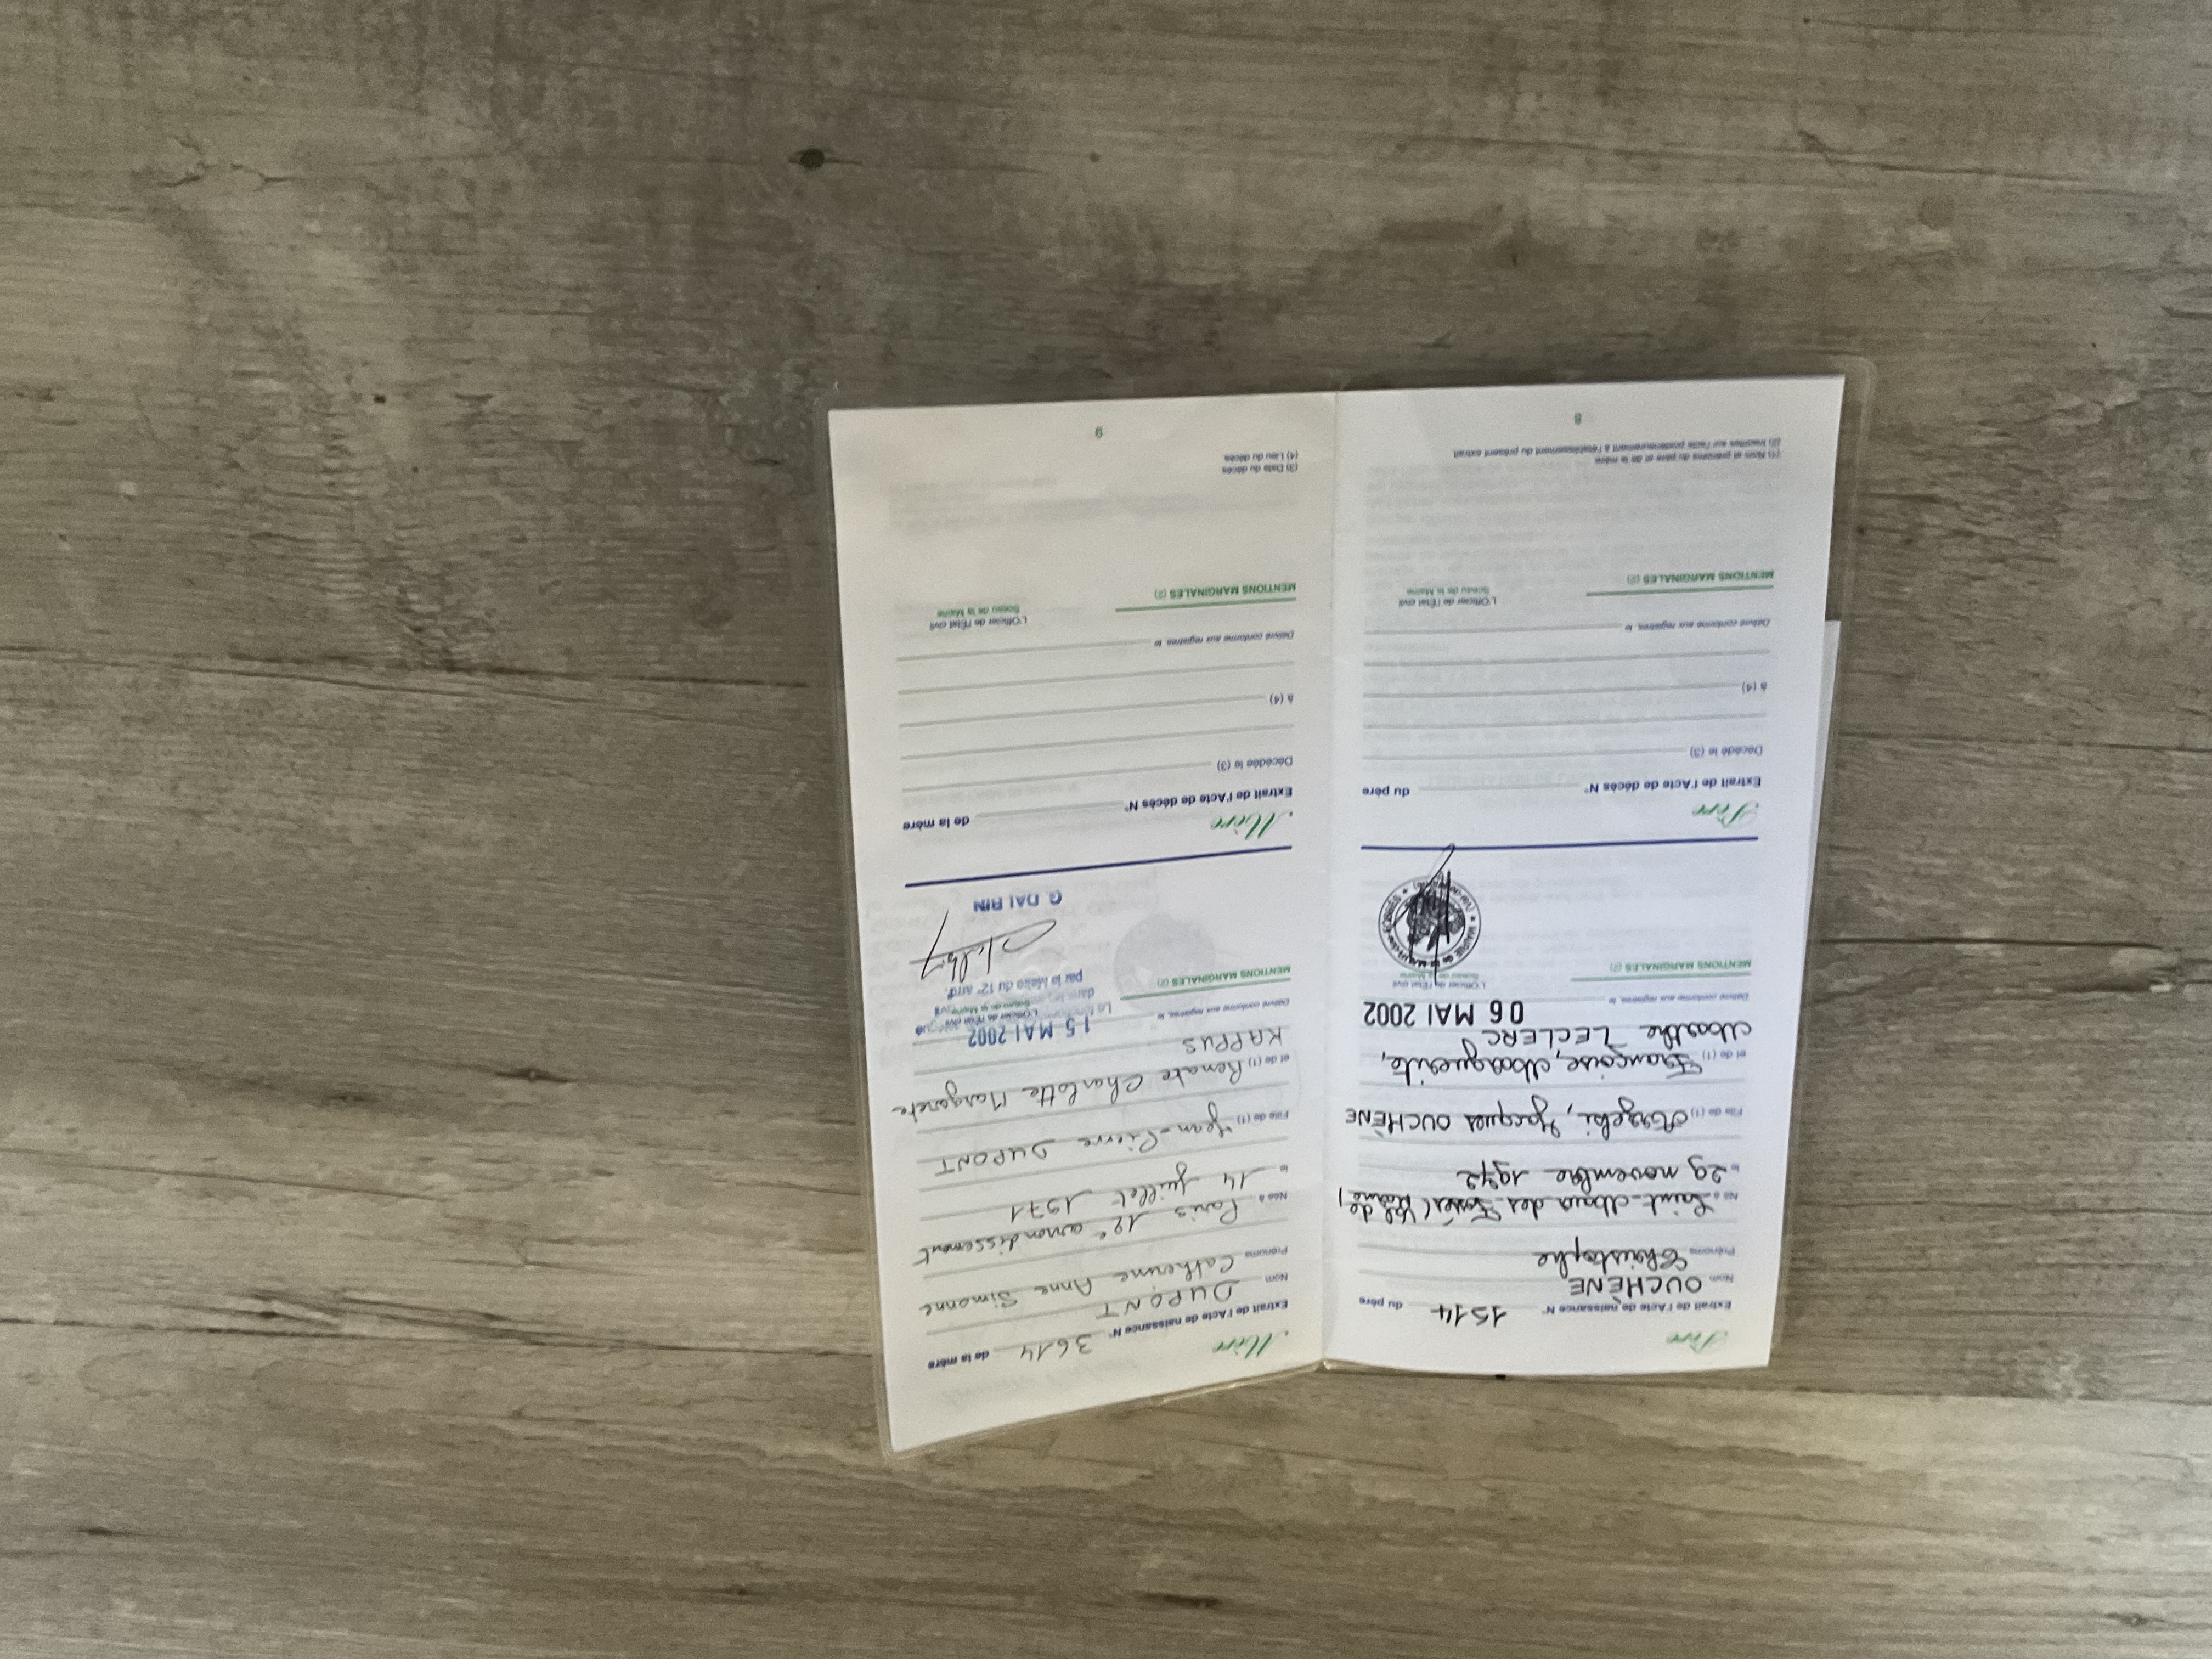 Père
Extrait de l'Acte de naissance N° 1514 du père
Nom OUCHÈNE
Prénoms Christophe
Né à Saint-Maur des Fossés (Val de Marne)
le 29 novembre 1972
Fils de (1) Jacques OUCHÈNE
et de (1) Françoise, Marguerite,
Marthe LECLERC
Délivré conforme aux registres, le 06 MAI 2002
MENTIONS MARGINALES (2)
L'Officier de l'État civil
Sceau de la Mairie
Père
Extrait de l'Acte de décès N° du père
Décédé le (3)
à (4)
Délivré conforme aux registres, le
L'Officier de l'État civil
Sceau de la Mairie
MENTIONS MARGINALES (2)
(1) Nom et prénoms du père et de la mère
(2) Inscrites sur l'acte postérieurement à l'établissement du présent extrait
8
Mère
Extrait de l'Acte de naissance N° 3614 de la mère
Nom DUPONT
Prénoms Catherine Anne Simonne
Née à Paris 12e arrondissement
le 14 juillet 1971
Fille de (1) Jean-Pierre DUPONT
et de (1) Renate Charlotte Margarete
KAPPUS
Délivré conforme aux registres, le 15 MAI 2002
L'Officier de l'État civil
Sceau de la Mairie
MENTIONS MARGINALES (2)
par la Maire du 12e Arrdt.
Mère
Extrait de l'Acte de décès N° de la mère
Décédée le (3)
à (4)
Délivré conforme aux registres, le
L'Officier de l'État civil
Sceau de la Mairie
MENTIONS MARGINALES (2)
(3) Date du décès
(4) Lieu du décès
9